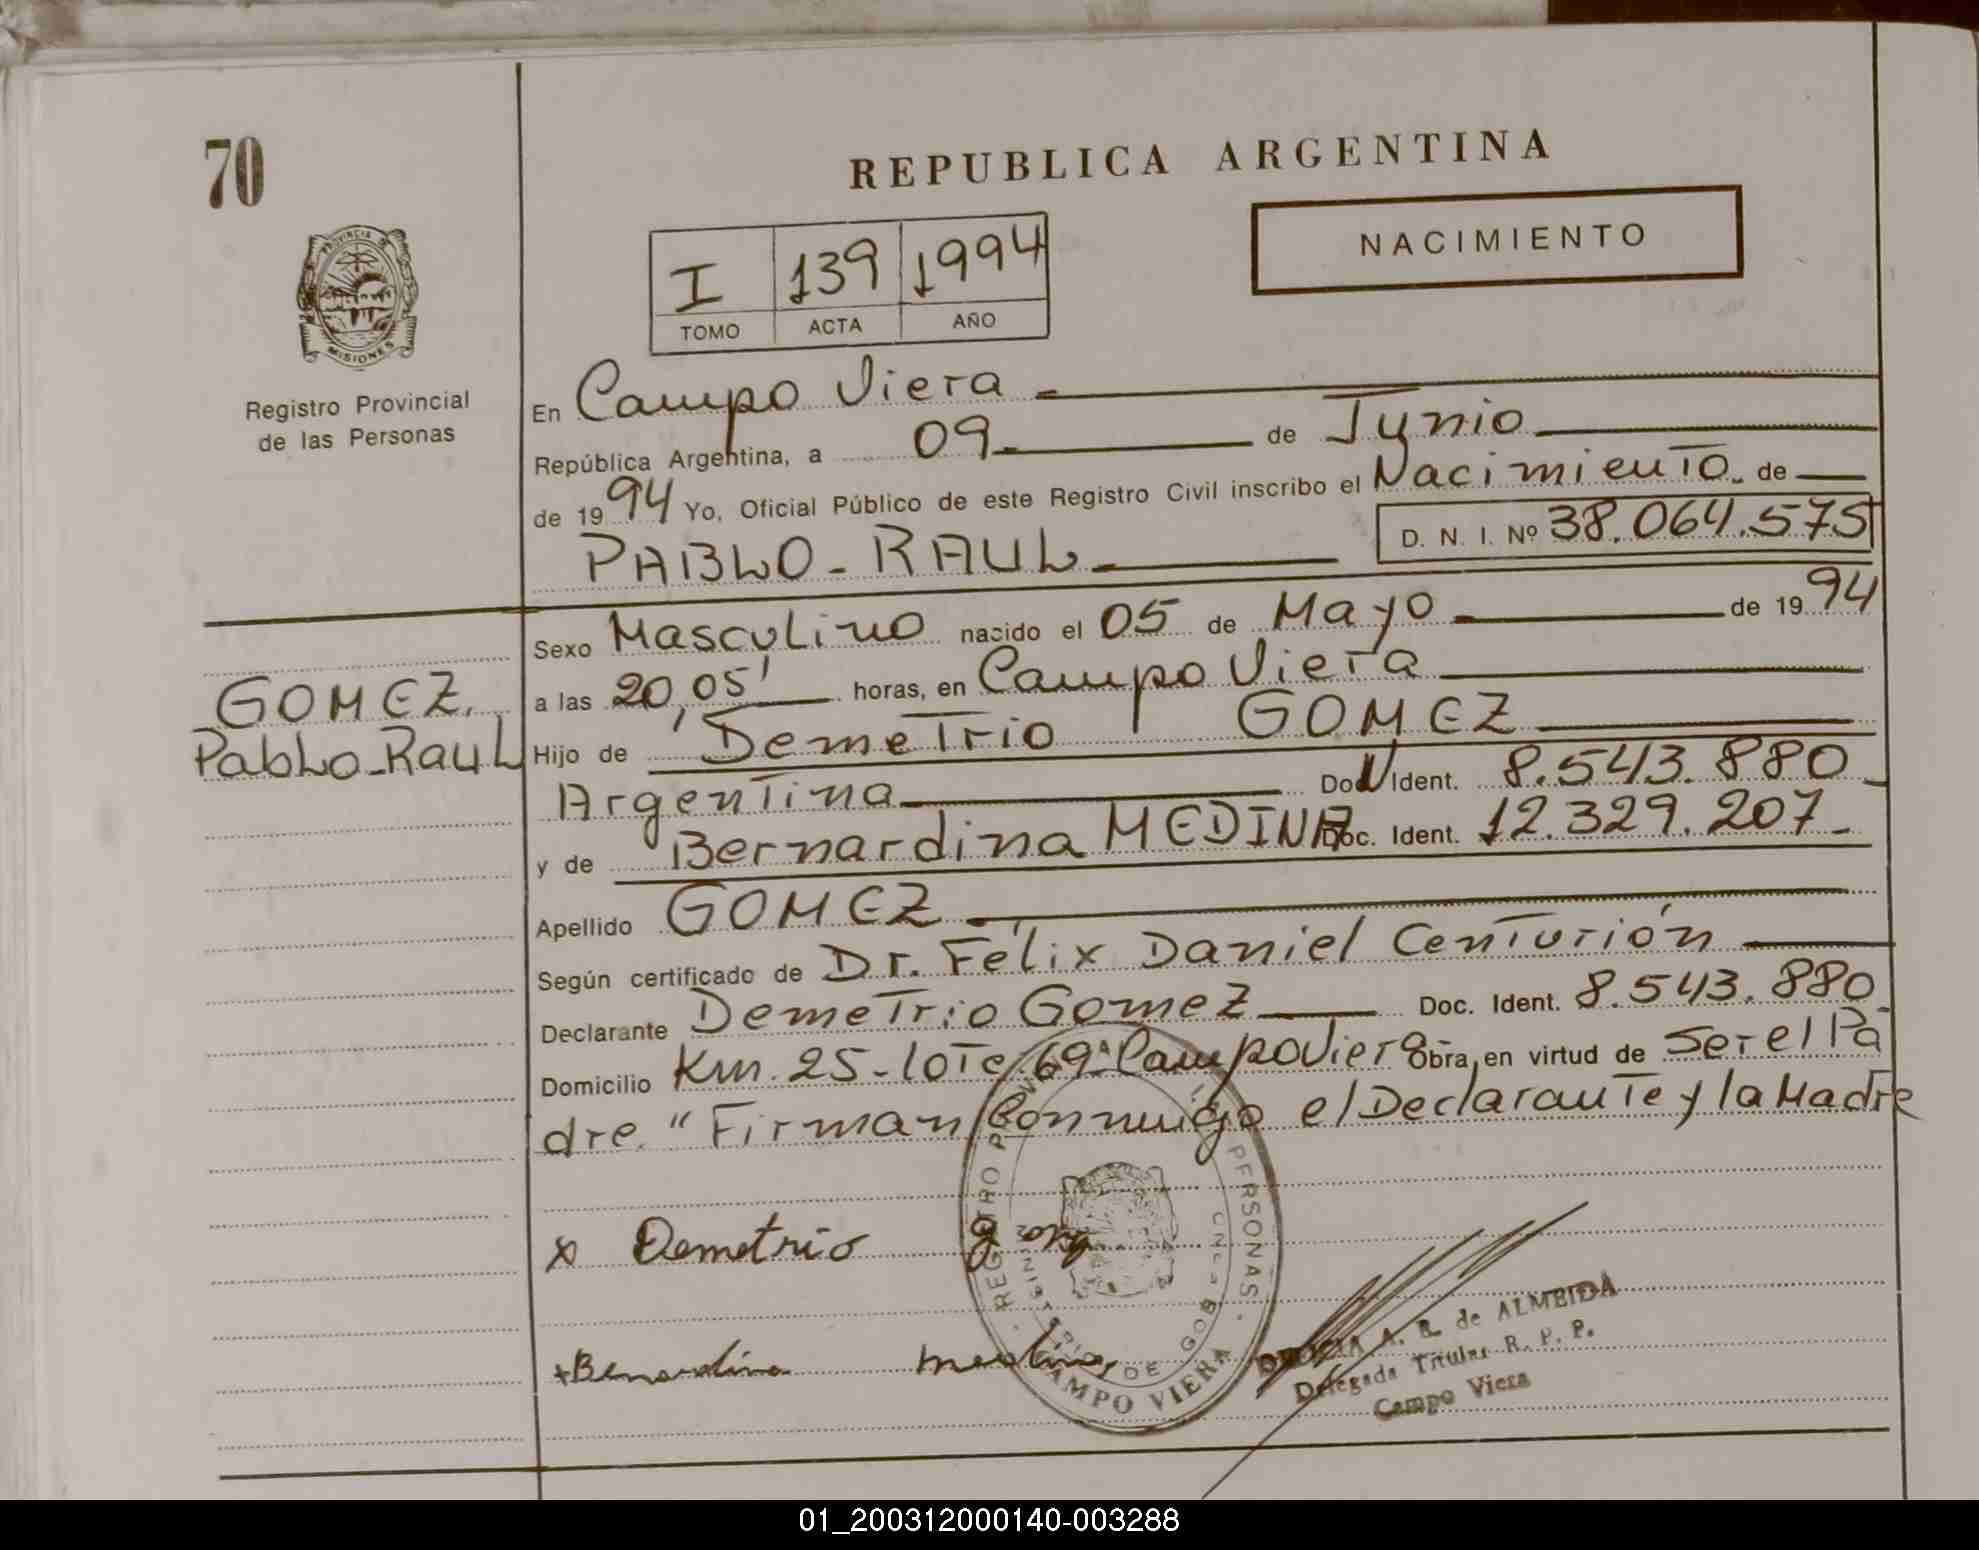 70
REPUBLICA ARGENTINA
NACIMIENTO
I 139 1994
TOMO ACTA AÑO
PROVINCIA DE
MISIONES
Registro Provincial
de las Personas
En Campo Viera
República Argentina, a 09 de Junio
de 1994 Yo, Oficial Público de este Registro Civil inscribo el Nacimiento de
PABLO - RAUL D. N. I. Nº 38.064.575
Sexo Masculino nacido el 05 de Mayo de 1994
GOMEZ,
Pablo-Raul
a las 20,05' horas, en Campo Viera
Hijo de Demetrio GOMEZ
Argentina Doc Ident. 8.543.880
y de Bernardina MEDINA Doc. Ident. 12.329.207
Apellido GOMEZ
Según certificado de Dr. Félix Daniel Centurión
Declarante Demetrio Gomez Doc. Ident. 8.543.880
Domicilio Km. 25 - lote 69ª Campo Viera Obra en virtud de Ser el Pa
dre. " Firman Conmigo el Declarante y la Madre
x Demetrio
+Benardina medina
REGISTRO PERSONAS
DE GOB
CAMPO VIERA
A. R. de ALMEIDA
Delegada Titular R. P. P.
Campo Viera
01_200312000140-003288